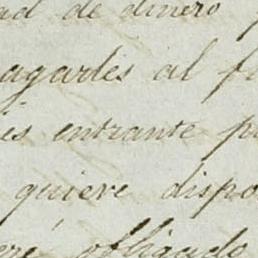 ad de dinero
agarles al f
es entrante p
quiere dispo
eré obligado